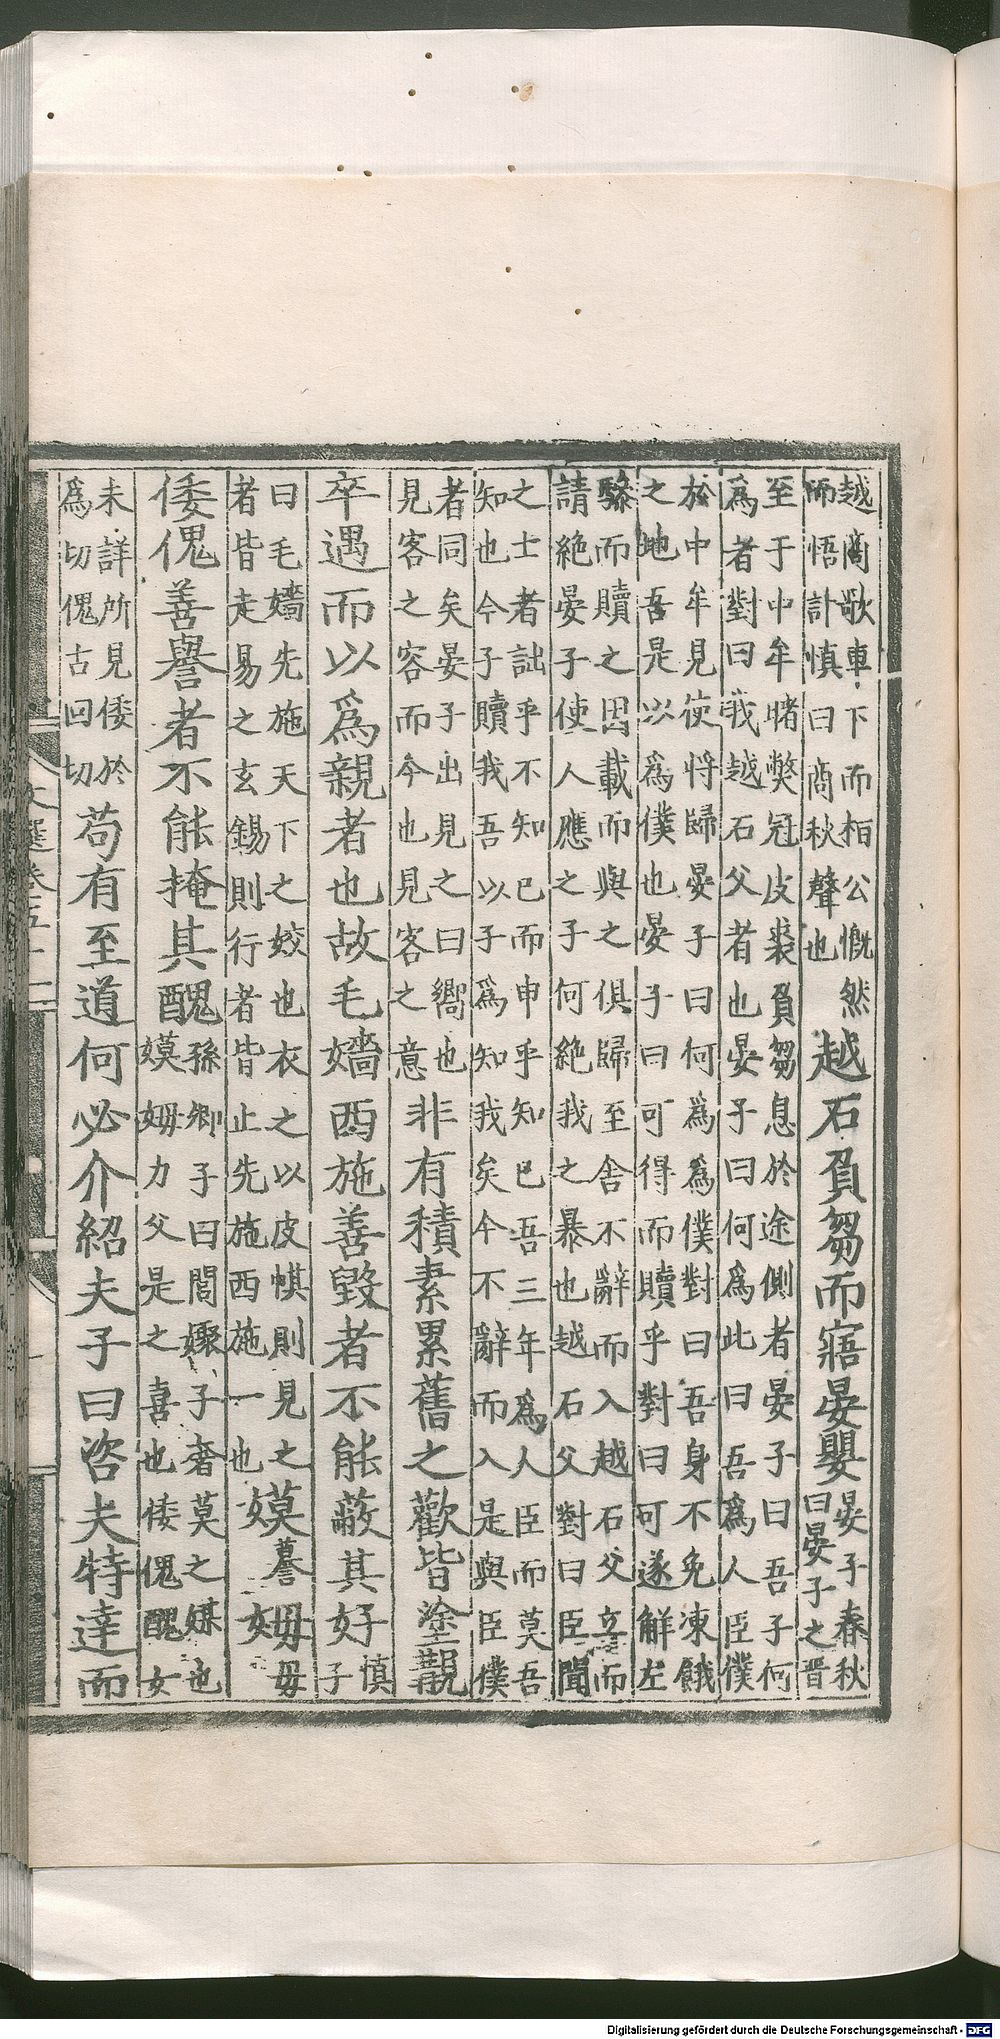 越商歌車下而桓公慨然
而悟許慎曰商秋聲也
越石負芻而寤晏嬰
晏子春秋
曰晏子之晉
至于中牟睹獘冠皮裘負芻息於途側者晏子曰吾子何
爲者對曰我越石父者也晏子曰何爲此曰吾爲人臣僕
於中牟見使將歸晏子曰何爲爲僕對曰吾身不免凍餓
之地吾是以爲僕也晏子曰可得而贖乎對曰可遂解左
驂而贖之因載而與之俱歸至舍不辭而入越石父立而
請絶晏子使人應之子何絶我之暴也越石父對曰臣聞
之士者詘乎不知已而申乎知已吾三年爲人臣而莫吾
知也今子贖我吾以子爲知我矣今不辭而入是與臣僕
者同矣晏子出見之曰嚮也
見客之容而今也見客之意
非有積素累舊之歡皆塗覯
卒遇而以爲親者也故毛嬙西施善毀者不能蔽其好
慎
子
曰毛嬙先施天下之姣也衣之以皮倛則見之
者皆走易之玄錫則行者皆止先施西施一也
嫫
母
嫫謩
母毋
倭傀善譽者不能掩其醜
孫卿子曰閭娵子奢莫之媒也
嫫母力父是之喜也倭傀醜女
未詳所見倭於
爲切傀古回切
苟有至道何必介紹夫子曰咨夫特達而
文選卷五十一
Digitalisierung gefördert durch die Deutsche Forschungsgemeinschaft - DFG